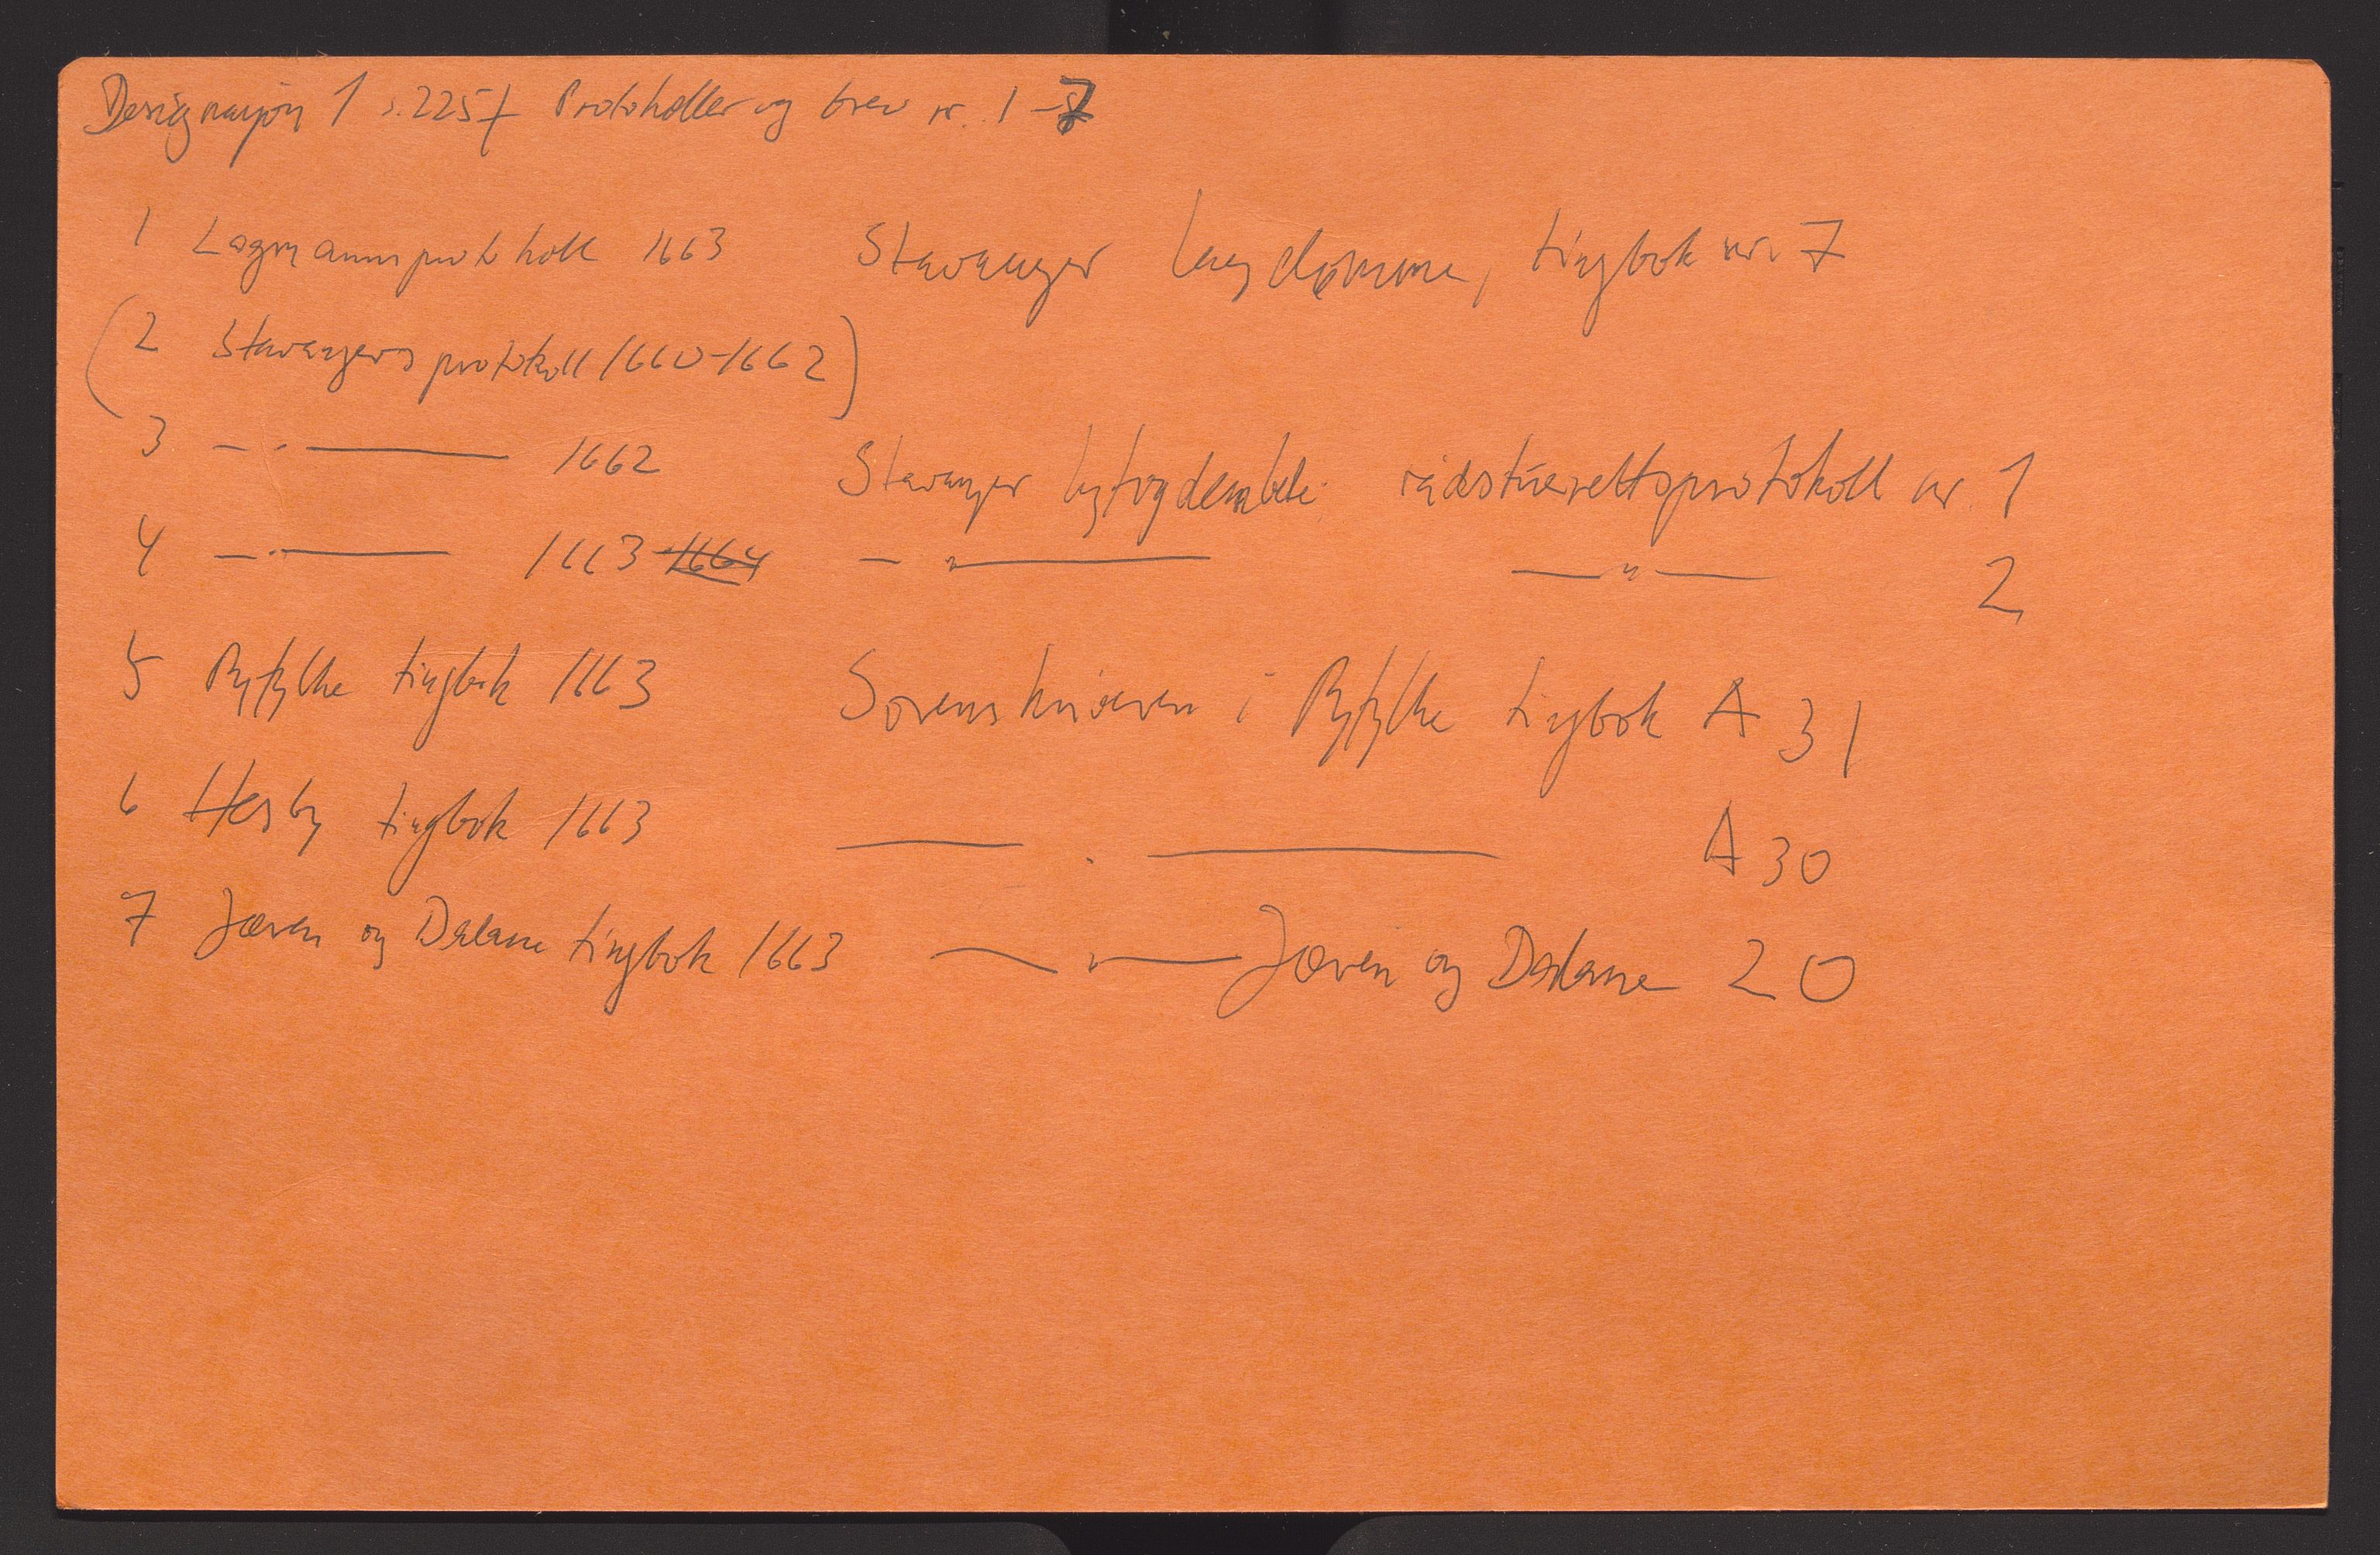 Designasjon 1 s. 225f Protokoller og brev nr. 1-7
1 Lagmannsprotokoll 1663 Stavanger lagdømme, tingbok nr 7
(2 Stavangers protokoll 1660-1662)
3 — " — 1662 Stavanger byfogdembete rådstueretts­protokoll nr. 1
4 — " — 1663 -1664 — " — — " — 2
5 Ryfylke tingbok 1663 Sorenskriveren i Ryfylke tingbok A 31
6 Hesby tingbok 1663 — " — A 30
7 Jæren og Dalane tingbok 1663 — " — Jæren og Dalane 20